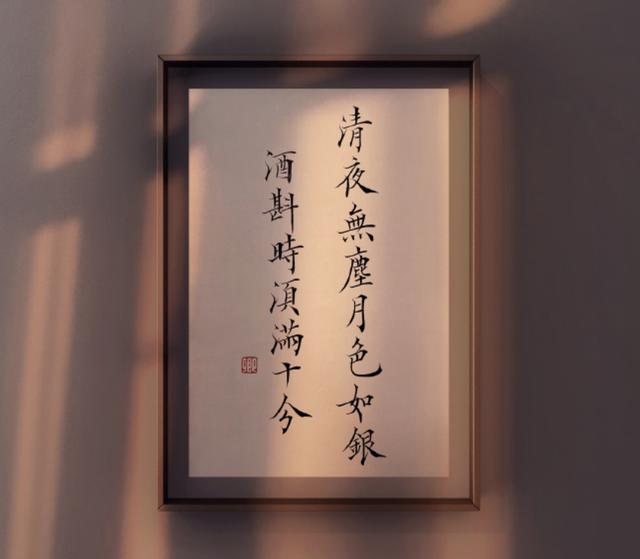 清夜無塵月色如銀
酒斟時湏滿十分